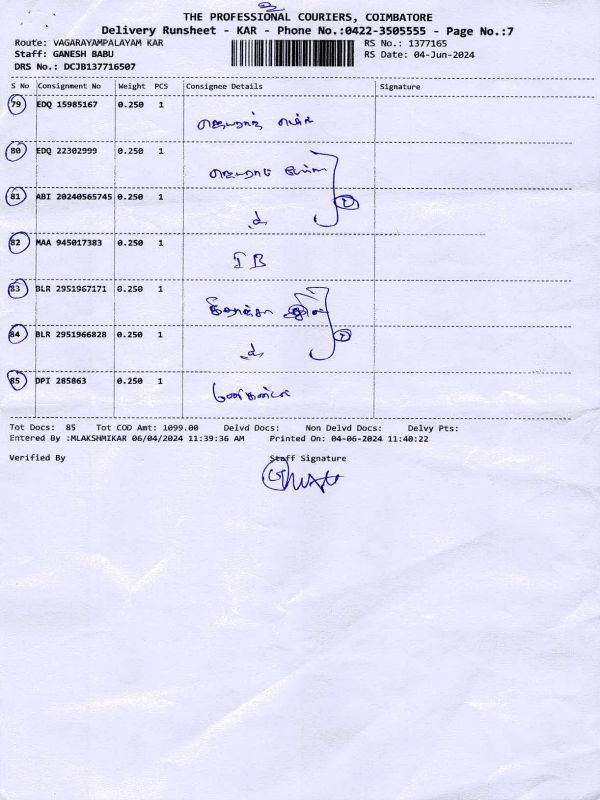 THE PROFESSIONAL COURIERS, COIMBATORE
Delivery Runsheet - KAR - Phone No.:0422-3505555 - Page No.:7
Route: VAGARAYAMPALAYAM KAR RS No.: 1377165
Staff: GANESH BABU RS Date: 04-Jun-2024
DRS No.: DCJB137716507
S No Consignment No Weight PCS Consignee Details Signature
79 EDQ 15985167 0.250 1
80 EDQ 22302999 0.250 1
81 ABI 20240565745 0.250 1
82 MAA 945017383 0.250 1 IB
83 BLR 2951967171 0.250 1
84 BLR 2951966828 0.250 1
85 DPI 285863 0.250 1
Tot Docs: 85 Tot COD Amt: 1099.00 Delvd Docs: Non Delvd Docs: Delvy Pts:
Entered By :MLAKSHMIKAR 06/04/2024 11:39:36 AM Printed On: 04-06-2024 11:40:22
Verified By Staff Signature